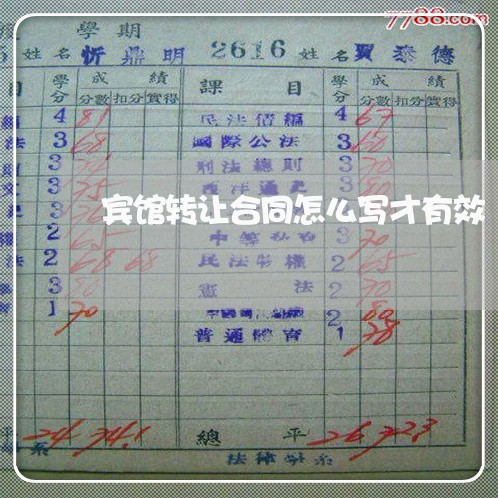 7788.com
學期
姓名 忻鼎明 2616 姓名 賈泰德
目 學分 成績 課目 學分 成績
分數 扣分 實得 分數 扣分 實得
4 81 民法債編 4 67
法 3 68 國際公法 3 60
3 刑法總則 3 70
3 75 3 80
宾馆转让合同怎么写才有效
2 65 3 70
法 2 68 68 民法物權 2 65
3 80 憲法 2 70
1 70 2 80
普通體育 1 78
平 24 74.1 總平 26 72.3
系 法律學系